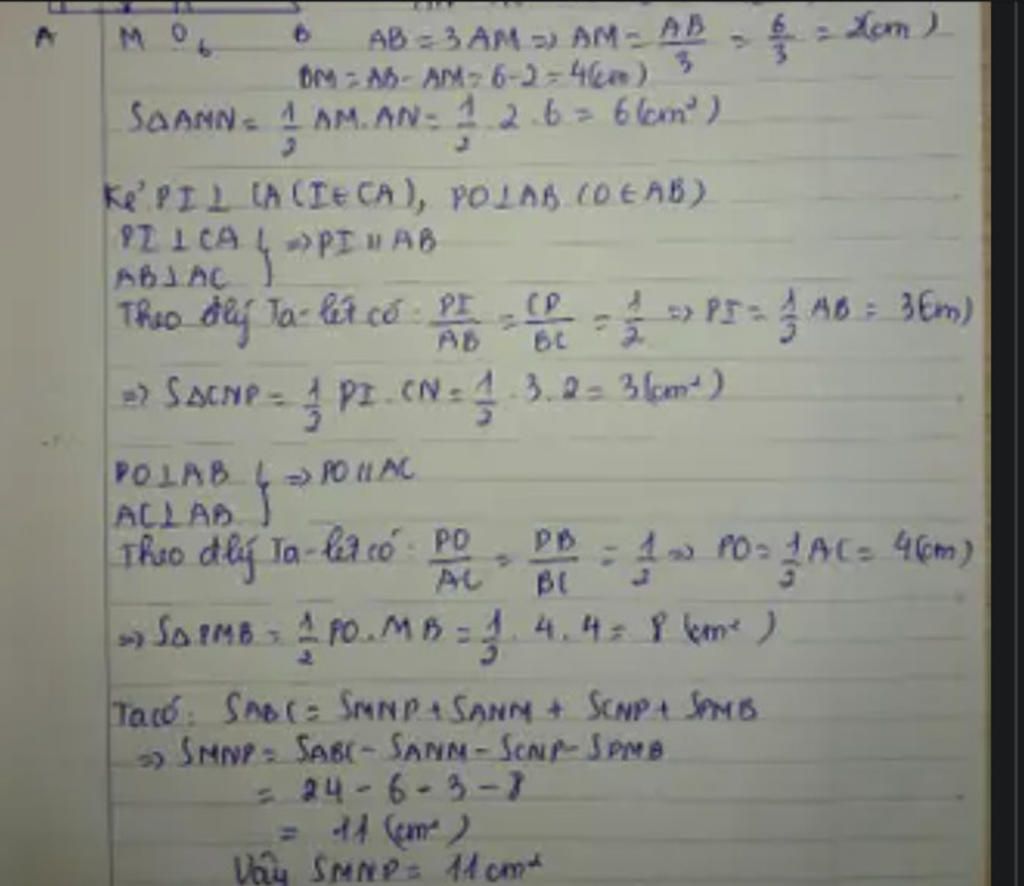 A M O 6 B AB = 3AM => AM = AB/3 = 6/3 = 2(cm)
BM = AB - AM = 6 - 2 = 4(cm)
SΔAMN = 1/2 AM.AN = 1/2 . 2 . 6 = 6(cm²)
Kẻ PI ⊥ CA (I ∈ CA), PO ⊥ AB (O ∈ AB)
PI ⊥ CA } => PI // AB
AB ⊥ AC
Theo đlý Ta-lét có: PI/AB = CP/BC = 1/2 => PI = 1/2 AB = 3(cm)
=> SΔCNP = 1/2 PI . CN = 1/2 . 3 . 2 = 3(cm²)
PO ⊥ AB } => PO // AC
AC ⊥ AB
Theo đlý Ta-lét có: PO/AC = PB/BC = 1/2 => PO = 1/2 AC = 4(cm)
=> SΔPMB = 1/2 PO . MB = 1/2 . 4 . 4 = 8 (cm²)
Ta có: SABC = SMNP + SANM + SCNP + SPMB
=> SMNP = SABC - SANM - SCNP - SPMB
= 24 - 6 - 3 - 8
= 11 (cm²)
Vậy SMNP = 11cm²